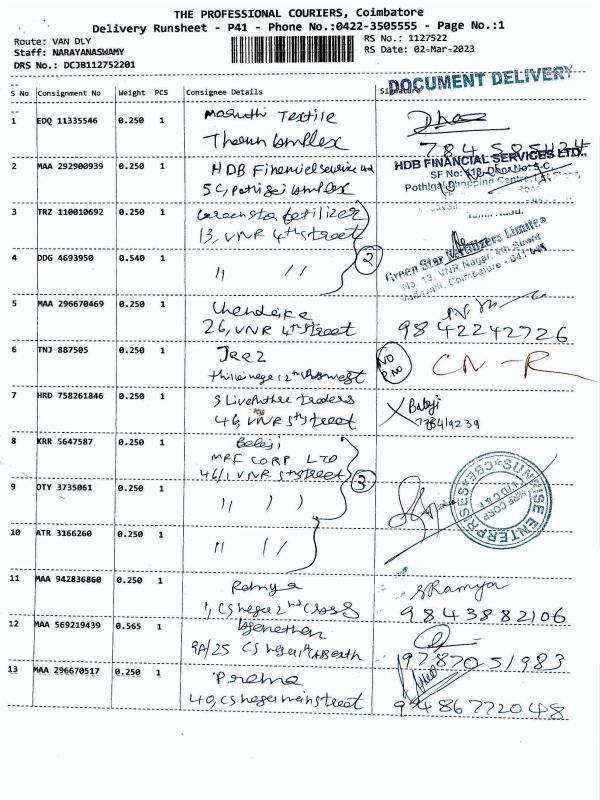 THE PROFESSIONAL COURIERS, Coimbatore
Delivery Runsheet - P41 - Phone No.:0422-3505555 - Page No.:1
Route: VAN DLY
Staff: NARAYANASWAMY
DRS No.: DCJB112752201
RS No.: 1127522
RS Date: 02-Mar-2023
DOCUMENT DELIVERY
S No Consignment No Weight PCS Consignee Details Signature
1 EDQ 11335546 0.250 1 Maruthi Textile
Tharun Complex
784 505424
2 MAA 292900939 0.250 1 HDB Financiel service Ltd
5C, Pothigai complex
HDB FINANCIAL SERVICES LTD.,
SF No:
Pothigai Shopping Centre,
Tamil Nadu.
3 TRZ 110010692 0.250 1 Greenstar fertilizer
13, VNR 4th street
4 DDG 4693950 0.540 1 " "
2
Green Star Fertilizers Limited
No. 13, VNR Nagar, 4th Street
Coimbatore - 641
5 MAA 296670469 0.250 1 Chandrika
26, VNR 4th street
98 42242726
6 TNJ 887505 0.250 1 Jeez
NO P.NO
CN-R
7 HRD 758261846 0.250 1 traders
46, VNR 5th street
Balaji
8 KRR 5647587 0.250 1 Balaji
MRF CORP LTD
46/1 VNR 5th street
9 OTY 3735061 0.250 1 " " )
3
SUNRISE ENTERPRISES * CBE *
MRF CORP
10 ATR 3166260 0.250 1 " "
11 MAA 942836860 0.250 1 Ramya
1, CS nagar 2nd Cross
S Ramya
9843882106
12 MAA 569219439 0.565 1
9A/25 CS nagar
97870 51983
13 MAA 296670517 0.250 1 Prema
40, CS nagar main street
9486772048